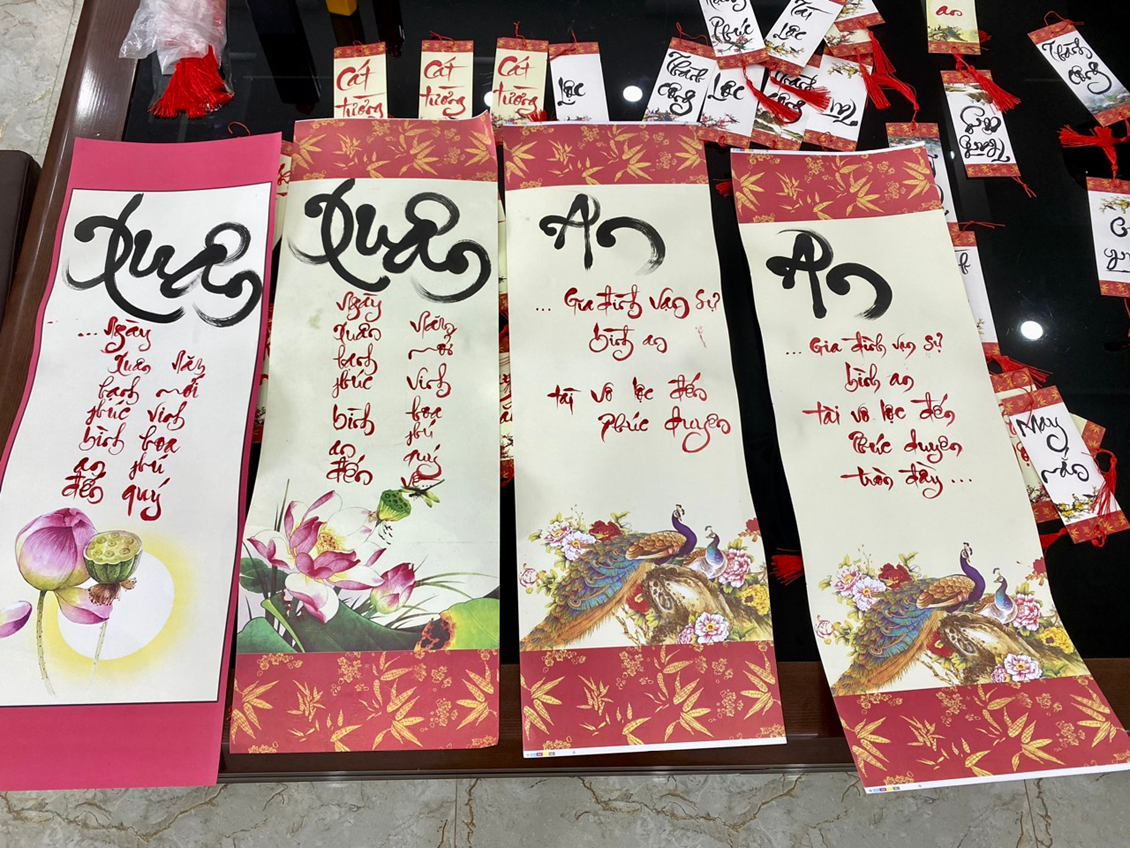 Phúc
Tài
Lộc
an
Cát
tường
Cát
tường
Cát
tường
Lộc
Thành
công
Lộc
Thành
công
Thành
công
Xuân
... Ngày
Xuân năm
hạnh mới
phúc vinh
bình hoa
an phú
đến quý
Xuân
Ngày
Xuân năm
hạnh mới
phúc vinh
bình hoa
phú
an quý
đến
An
... Gia đình vạn sự
bình an
tài vô lộc đến
Phúc duyên
An
... Gia đình vạn sự
bình an
tài vô lộc đến
Phúc duyên
tròn đầy ...
May
mắn